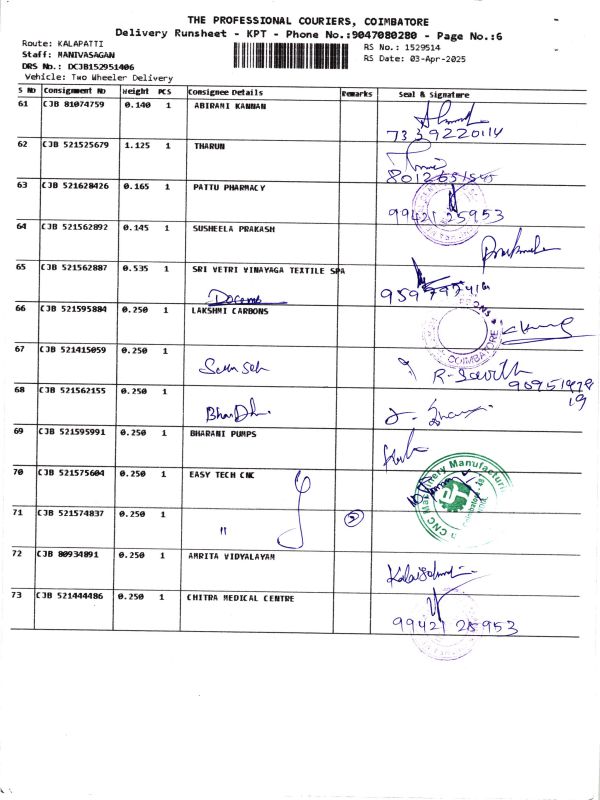 THE PROFESSIONAL COURIERS, COIMBATORE
Delivery Runsheet - KPT - Phone No.:9047080280 - Page No.:6
Route: KALAPATTI
RS No.: 1529514
Staff: MANIVASAGAN
RS Date: 03-Apr-2025
DRS No.: DCJB152951406
Vehicle: Two Wheeler Delivery
S No Consignment No Weight PCS Consignee Details Remarks Seal & Signature
61 CJB 81074759 0.140 1 ABIRAMI KANNAN
7339220114
62 CJB 521525679 1.125 1 THARUN
63 CJB 521628426 0.165 1 PATTU PHARMACY
9942125953
64 CJB 521562892 0.145 1 SUSHEELA PRAKASH
65 CJB 521562887 0.535 1 SRI VETRI VINAYAGA TEXTILE SPA
66 CJB 521595884 0.250 1 LAKSHMI CARBONS
COIMBATORE
67 CJB 521415059 0.250 1
68 CJB 521562155 0.250 1
69 CJB 521595991 0.250 1 BHARANI PUMPS
70 CJB 521575604 0.250 1 EASY TECH CNC
CNC Machinery Manufacturing
71 CJB 521574837 0.250 1 "
72 CJB 80934891 0.250 1 AMRITA VIDYALAYAM
73 CJB 521444486 0.250 1 CHITRA MEDICAL CENTRE
9942125953